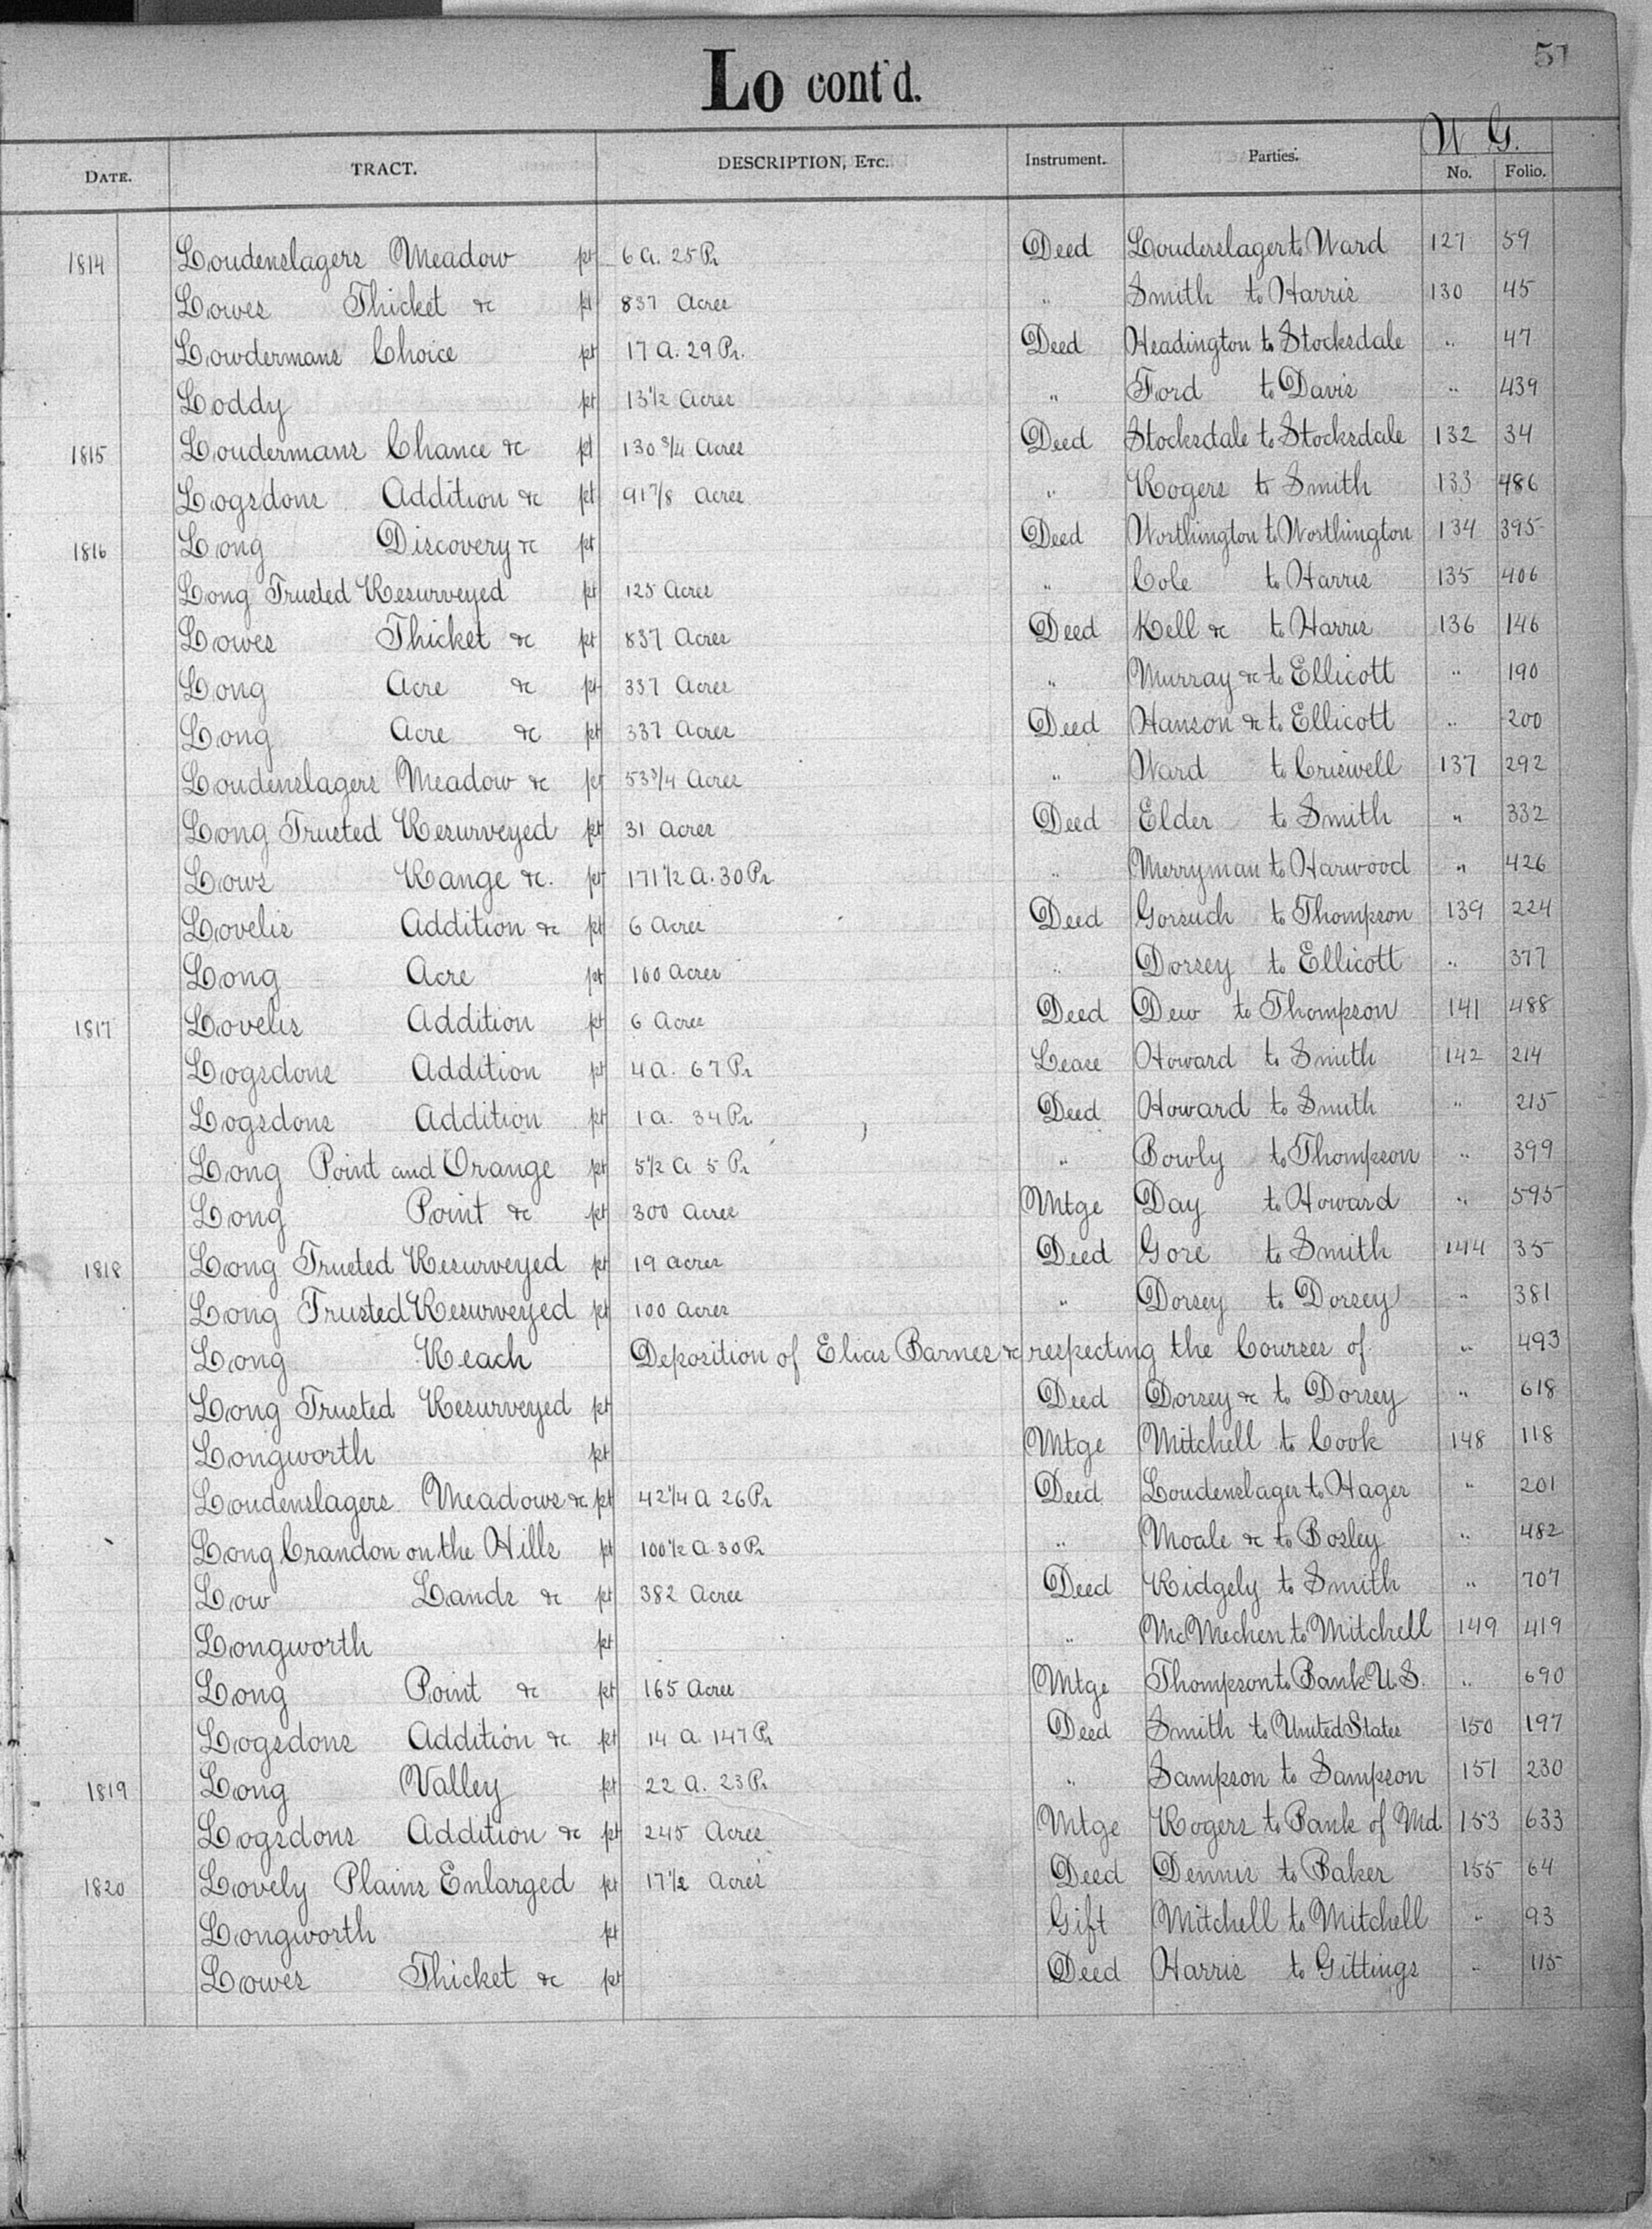 51
Lo cont'd.
W G.
DATE. TRACT. DESCRIPTION, ETC. Instrument. Parties. No. Folio.
1814 Loudenslagers Meadow pt 6 a. 25 Pr Deed Louderslager to Ward 127 59
Lowes Thicket &c pt 837 Acres " Smith to Harris 130 45
Lowdermans Choice pt 17 a. 29 Pr. Deed Headington to Stocksdale " 47
Loddy pt 13 1/2 Acres " Ford to Davis " 439
1815 Loudermans Chance &c pt 130 3/4 Acres Deed Stocksdale to Stocksdale 132 34
Logsdons Addition &c pt 91 7/8 Acres " Rogers to Smith 133 486
1816 Long Discovery &c pt Deed Worthington to Worthington 134 395
Long Trusted Resurveyed pt 125 Acres " Cole to Harris 135 406
Lowes Thicket &c pt 837 Acres Deed Kell &c to Harris 136 146
Long Acre &c pt 337 Acres " Murray &c to Ellicott " 190
Long Acre &c pt 337 Acres Deed Hanson &c to Ellicott " 200
Loudenslagers Meadow &c pt 53 3/4 Acres " Ward to Criswell 137 292
Long Trusted Resurveyed pt 31 acres Deed Elder to Smith " 332
Lows Range &c. pt 171 1/2 a. 30 Pr " Merryman to Harwood " 426
Lovelis Addition &c pt 6 Acres Deed Gorsuch to Thompson 139 224
Long Acre pt 160 Acres " Dorsey to Ellicott " 377
1817 Lovelis Addition pt 6 Acres Deed Dew to Thompson 141 488
Logsdons Addition pt 4 a. 67 Pr Lease Howard to Smith 142 214
Logsdons Addition pt 1 a. 34 Pr. Deed Howard to Smith " 215
Long Point and Orange pt 5 1/2 a 5 Pr " Bowly to Thompson " 399
Long Point &c pt 300 Acres Mtge Day to Howard " 595
1818 Long Trusted Resurveyed pt 19 acres Deed Gore to Smith 144 35
Long Trusted Resurveyed pt 100 acres " Dorsey to Dorsey " 381
Long Reach Deposition of Elias Barnes &c respecting the Courses of " 493
Long Trusted Resurveyed pt Deed Dorsey &c to Dorsey " 618
Longworth pt Mtge Mitchell to Cook 148 118
Loudenslagers Meadows &c pt 42 1/4 a 26 Pr Deed Loudenslager to Hager " 201
Long Crandon on the Hills pt 100 1/2 a 30 Pr " Moale &c to Bosley " 482
Low Lands &c pt 382 Acres Deed Ridgely to Smith " 707
Longworth pt " McMechen to Mitchell 149 419
Long Point &c pt 165 Acres Mtge Thompson to Bank U.S. " 690
Logsdons Addition &c pt 14 a. 147 Pr Deed Smith to United States 150 197
1819 Long Valley pt 22 a. 23 Pr " Sampson to Sampson 151 230
Logsdons Addition &c pt 245 Acres Mtge Rogers to Bank of Md. 153 633
1820 Lovely Plains Enlarged pt 17 1/2 Acres Deed Dennis to Baker 155 64
Longworth pt Gift Mitchell to Mitchell " 93
Lowes Thicket &c pt Deed Harris to Gittings " 115